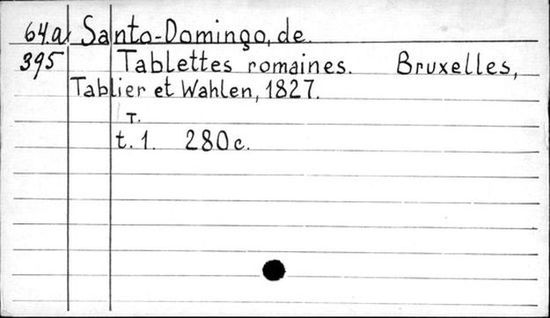 64.a Santo-Domingo, de.
395 Tablettes romaines. Bruxelles,
Tablier et Wahlen, 1827.
т.
t. 1. 280 c.